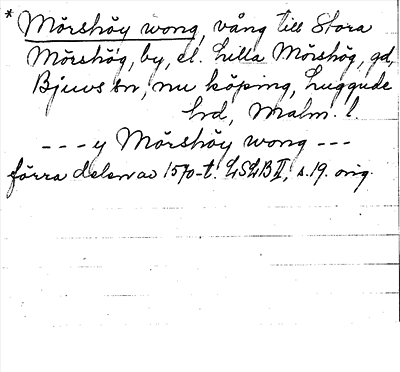 * Mörshöy wong, vång till Stora
Mörshög, by, el. Lilla Mörshög, gd,
Bjuvs sn, nu köping, Luggude
hd, Malm. l.
- - - y Mörshöy wong - - -
förra delen av 1570-t. LSLB II, s. 19. orig.